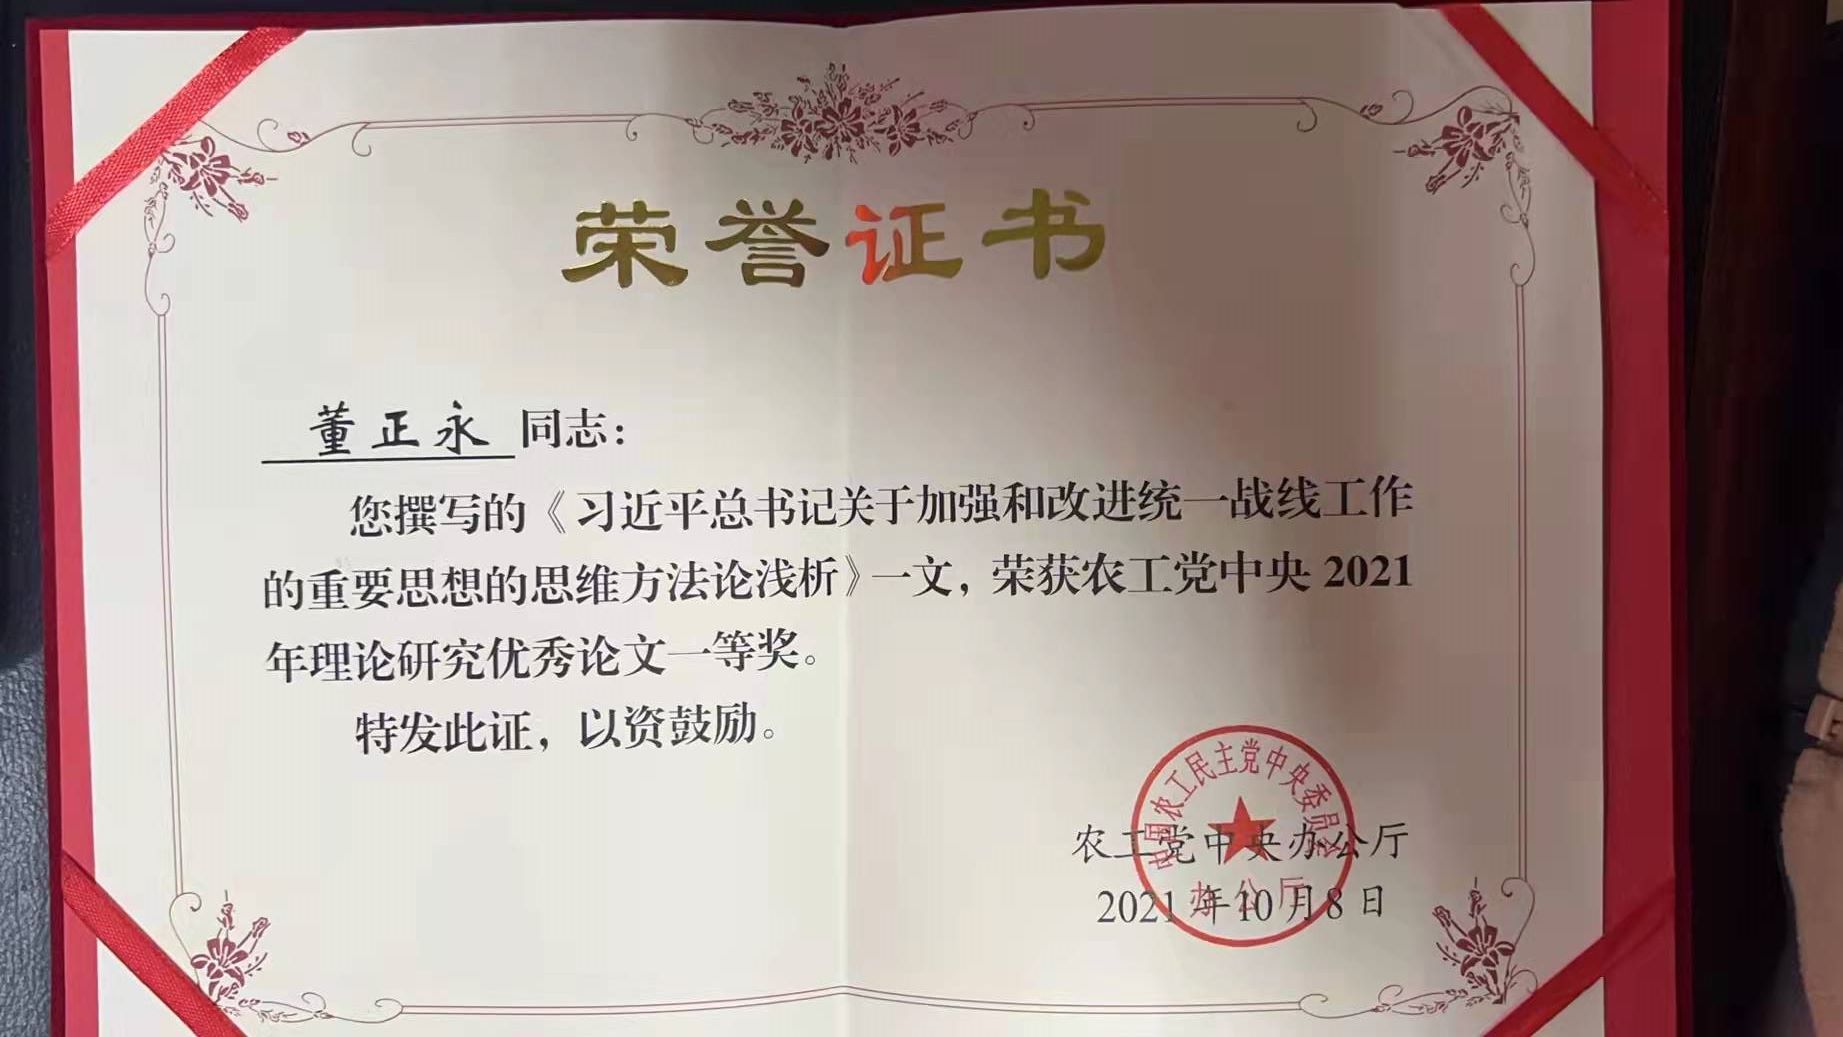 荣誉证书
董正永 同志：
您撰写的《习近平总书记关于加强和改进统一战线工作
的重要思想的思维方法论浅析》一文，荣获农工党中央 2021
年理论研究优秀论文一等奖。
特发此证，以资鼓励。
中国农工民主党中央委员会
农工党中央办公厅
办公厅
2021 年 10 月 8 日